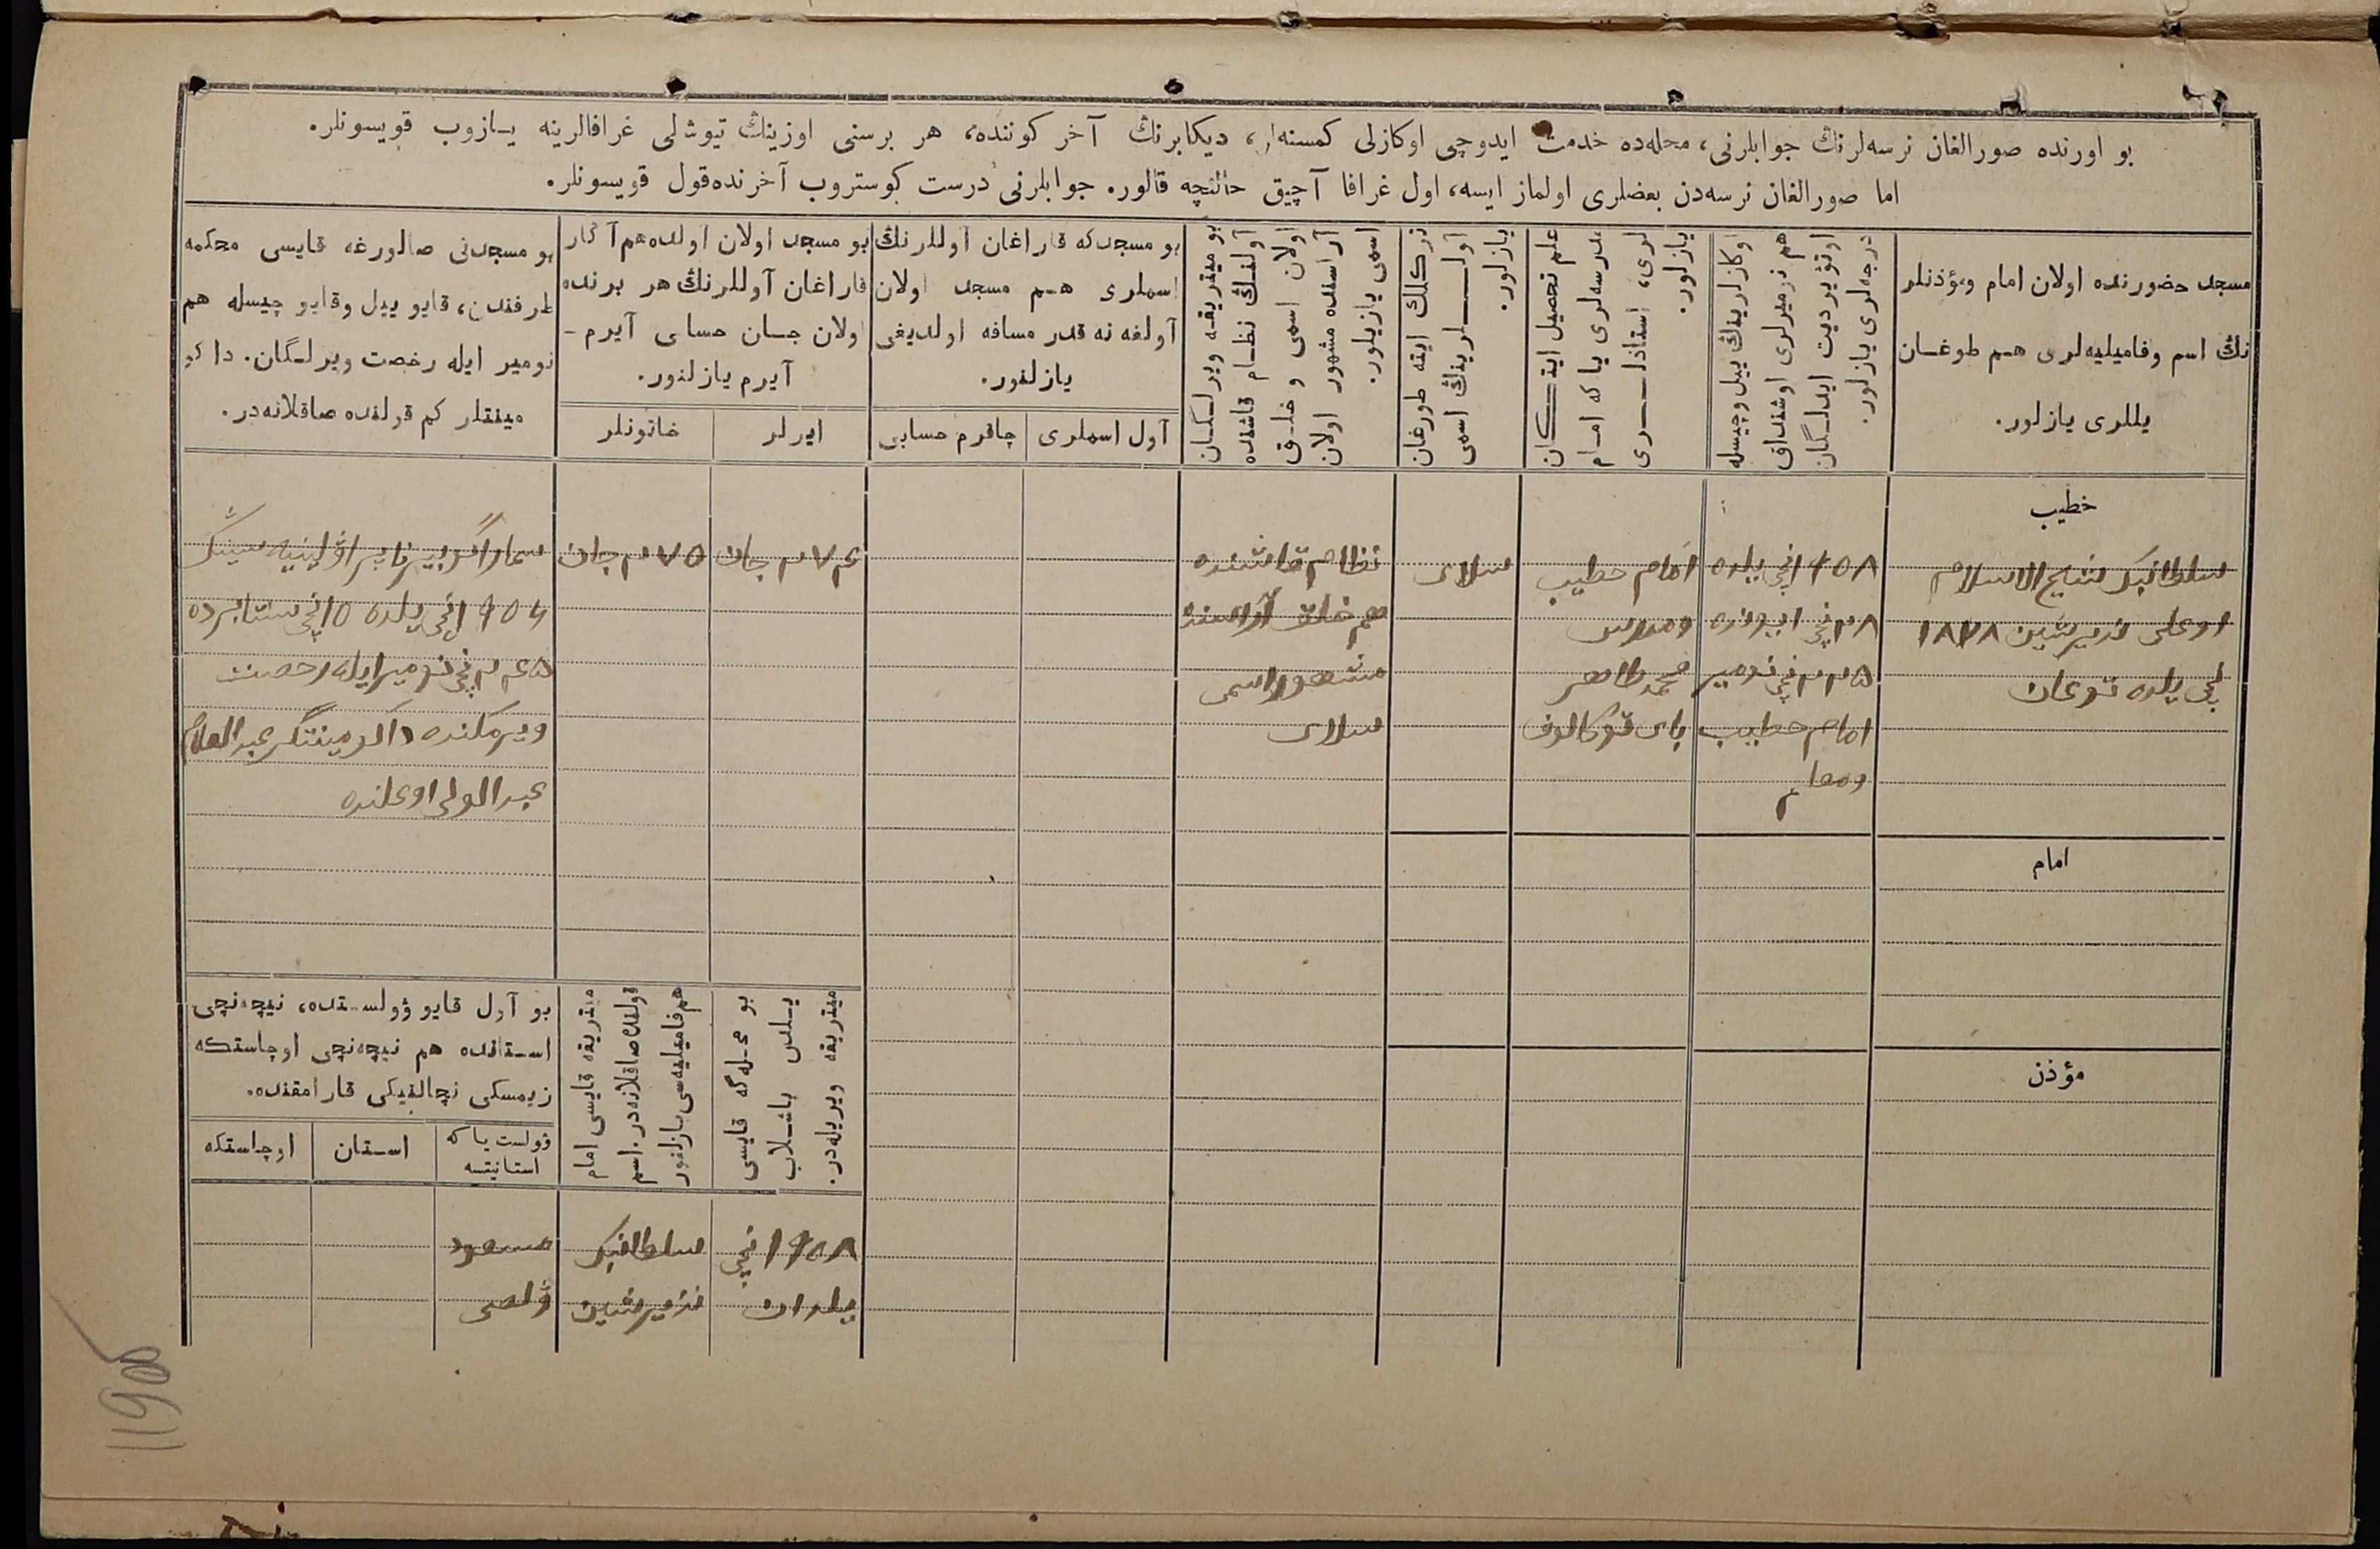 بو اورنده صورالغان نرسه‌لرنڭ جوابلرنی، محله‌ده خدمت ایدوچی اوکازلی کمسنه‌لر، دیکابرنڭ آخر کوننده، هر برسنی اوزینڭ تیوشلی غرافالرینه یازوب قویسونلر.
اما صورالغان نرسه‌دن بعضلری اولماز ایسه، اول غرافا آچیق حالنچه قالور. جوابلرنی درست کوستروب آخرنده قول قویسونلر.
مسجد حضورنده اولان امام ومؤذنلر
نڭ اسم وفامیلیه‌لری هم طوغان
یللری یازلور.
اوکازلرینڭ ییل وچیسله
هم نومیرلری اوشنداق
اوتویردیت ایدلگان
درجه‌لری یازلور.
علم تحصیل ایتکان
مدرسه‌لری یا که امام
لری، استاذلری
یازلور.
نرکلك ایته طورغان
آوللرینڭ اسمی
یازلور.
بو میتریقه ویرلگان
آولنڭ نظام قاشنده
اولان اسمی و خلق
آراسنده مشهور اولان
اسمی یازیلور.
بو مسجدکه قاراغان آوللرنڭ
اسملری هم مسجد اولان
آولغه نه قدر مسافه اولدیغی
یازلنور.
آول اسملری
چاقرم حسابی
بو مسجد اولان اولده هم آڭار
قاراغان آوللرنڭ هر برنده
اولان جان حسابی آیرم -
آیرم یازلنور.
ایرلر
خاتونلر
بو مسجدنی صالورغه قایسی محکمه
طرفندن، قایو ییل وقایو چیسله هم
نومیر ایله رخصت ویرلگان. داکو
مینتلر کم قولنده صاقلانه‌در.
خطیب
سلطانبک شیخ الاسلام
اوغلی نذیرشین ۱۸۷۸
نچی یلده توغان
۱۹۰۸ نچی یلده
۲۸ نچی ایونده
۲۲۵ نچی نومیر
امام خطیب
ومعلم
امام خطیب
ومدرس
محمد طاهر
بای توکالوف
سلای
نظام قاشنده
هم خلق آراسنده
مشهور اسمی
سلای
۲۷۴ جان
۲۷۵ جان
سمار گوبیرنا پراولینیه سینڭ
۱۹۰۴ نچی یلده ۱۵ نچی سنتابرده
۲۴۵ نچی نومیر ایله رخصت
ویرمکنده داکومینتلر عبد العلام
عبد الولی اوغلنده
امام
مؤذن
بو محله‌گه قایسی
یلدن باشلاب
میتریقه ویریله‌در.
میتریقه قایسی امام
قولنده صاقلانه‌در. اسم
هم فامیلیه‌سی یازلنور
بو آول قایو وولستده، نیچه‌نچی
استانده هم نیچه‌نچی اوچاستکه
زیمسکی نچالنیکی قارامقنده.
وولست یا که
استانیتسه
استان
اوچاستکه
۱۹۰۸ نچی
یلدان
سلطانبک
نذیرشین
مسعود
ولصی